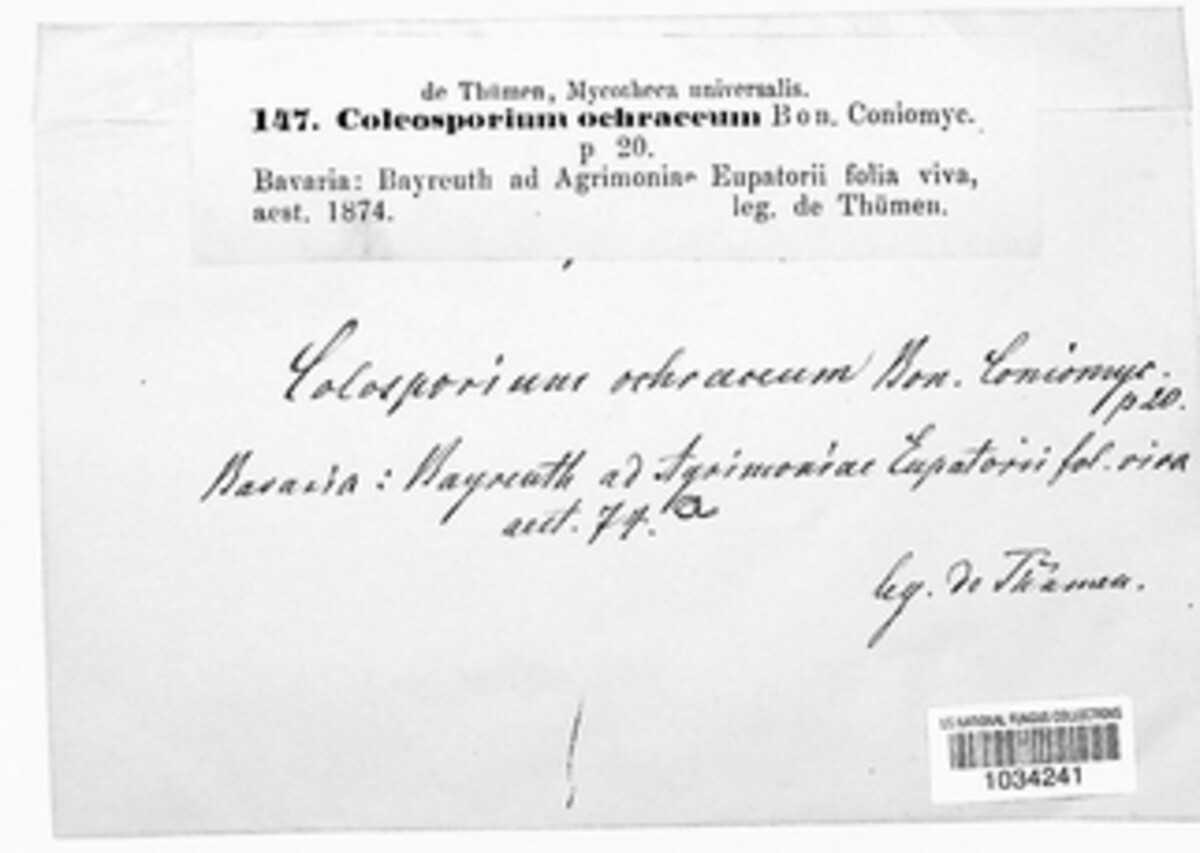 de Thümen, Mycotheca universalis.
147. Coleosporium ochraceum Bon. Coniomyc.
p 20.
Bavaria: Bayreuth ad Agrimoniae Eupatorii folia viva,
aest. 1874. leg. de Thümen.
Colosporium ochraceum Bon. Coniomyc.
p 20.
Bavaria: Bayreuth ad Agrimoniae Eupatorii fol. viva
aest. 74. a
leg. de Thümen.
US NATIONAL FUNGUS COLLECTIONS
1034241